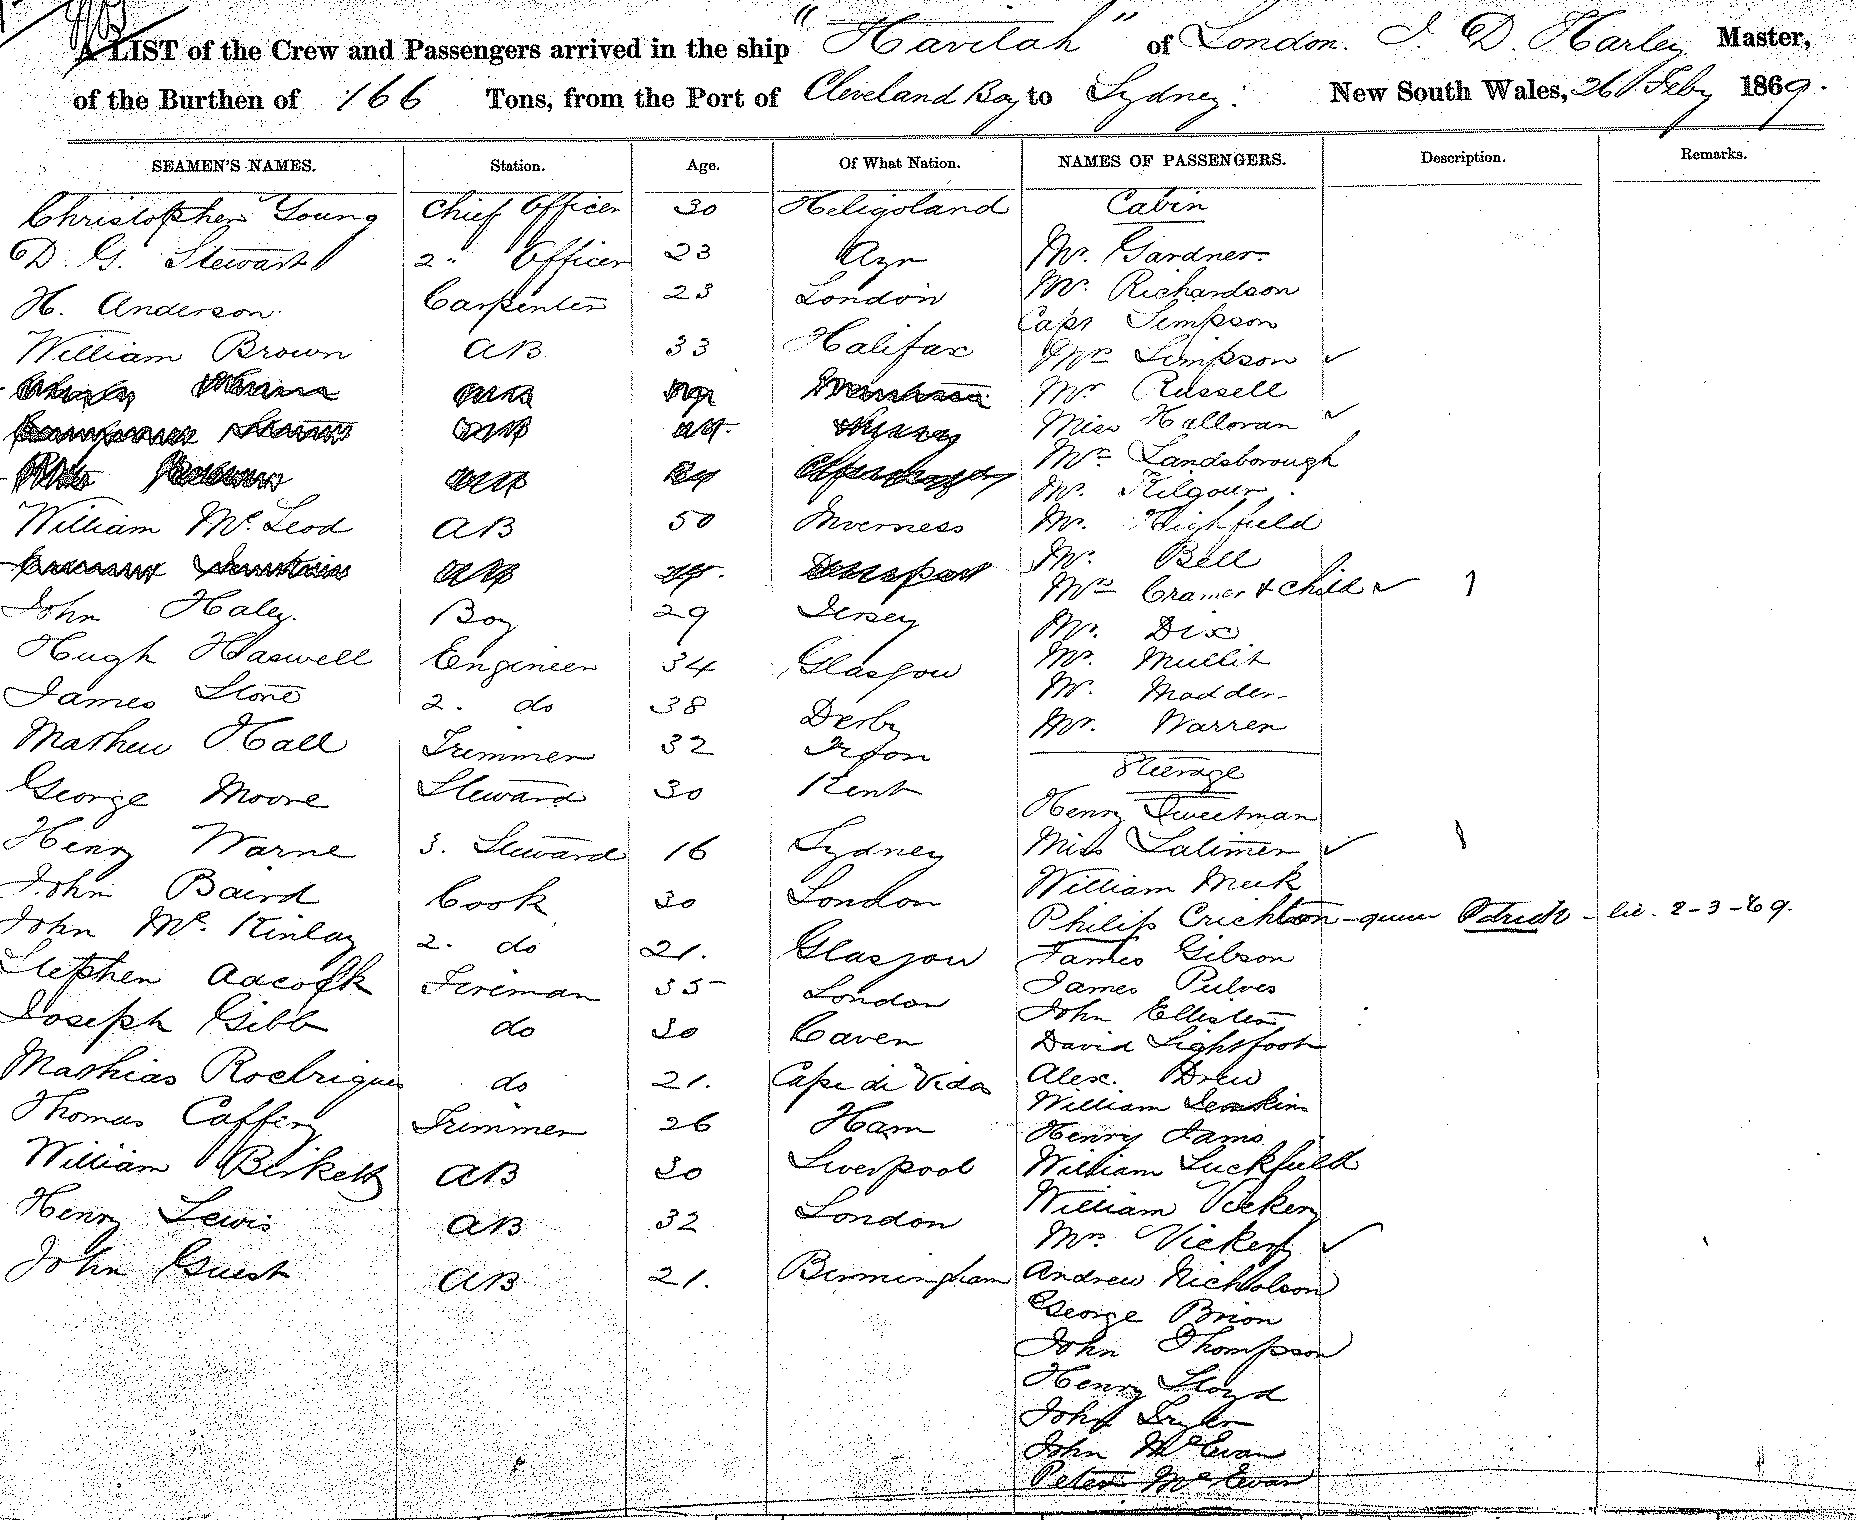 A LIST of the Crew and Passengers arrived in the ship "Havilah" of London. J. D. Harley Master,
of the Burthen of 166 Tons, from the Port of Cleveland Bay to Sydney: New South Wales, 26 Feby 1869.
SEAMEN'S NAMES. Station. Age. Of What Nation. NAMES OF PASSENGERS. Description. Remarks.
Christopher Young Chief Officer 30 Heligoland
D. G. Stewart 2" Officer 23 Ayr
H. Anderson Carpenter 23 London
William Brown AB 33 Halifax
William McLeod AB 50 Inverness
John Haley Boy 29 Jersey
Hugh Haswell Engineer 34 Glasgow
James Stone 2. do 38 Derby
Mathew Hall Trimmer 32
George Moore Steward 30 Kent
Henry Warne 3. Steward 16 Sydney
John Baird Cook 30 London
John McKinlay 2. do 21. Glasgow
Stephen Adcock Fireman 35 London
Joseph Gibb do 30 Caven
Mathias Rodrigues do 21. Cape di Vida
Thomas Caffery Trimmer 26 Ham
William Birkett AB 30 Liverpool
Henry Lewis AB 32 London
John Guest AB 21. Birmingham
Cabin
Mr. Gardner
Mr. Richardson
Capt Simpson
Mrs Simpson ✓
Mr Russell
Miss Halloran ✓
Mr Landsborough
Mr. Kilgour
Mr. Highfield
Mr. Bell
Mrs Cramer & Child ✓ 1
Mr. Dix
Mr. Mullit
Mr. Madder
Mr. Warren
Steerage
Henry Sweetman
Miss Latimer ✓ 1
William Meek
Philip Crichton - queer Patrick - lic. 2-3-69.
James Gibson
James Pulves
John Elliston
David Lightfoot
Alex. Drew
William Jenkins
Henry Jams
William Luckfield
William Vickery
Mrs. Vickery ✓
Andrew Nicholson
George Brion
John Thompson
Henry Lloyd
John
John McEwan
Peter McEwan